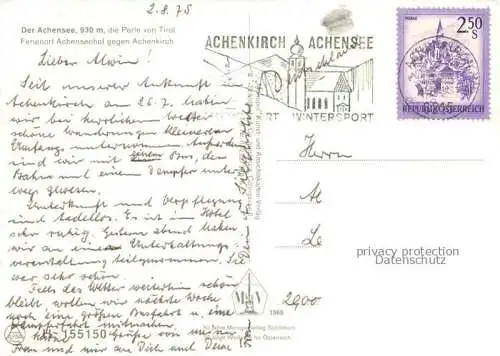 2.8.75
Der Achensee, 930 m, die Perle von Tirol
Ferienort Achenseehof gegen Achenkirch
Lieber Alwin!
Seit unserer Ankunft in
Achenkirch am 26.7. haben
wir bei herrlichem Wetter
schöne Wanderungen kleineren
Umfangs unternommen. Außerdem
sind wir mit einem Bus, der
Bahn und einem Dampfer unter-
wegs gewesen.
Unterkunft und Verpflegung
sind tadellos. Es ist im Hotel
sehr ruhig. Gestern abend haben
wir an einer Unterhaltungs-
veranstaltung teilgenommen. Sie
war sehr schön.
Falls das Wetter weiterhin schön
bleibt, wollen wir nächste Woche
noch eine größere Busfahrt u. eine
Dampferfahrt mitmachen.
155150 Grüße von meiner
Frau und mir an Dich und Deine
Frau
Dein
ACHENKIRCH ACHENSEE
WINTERSPORT
Deutschland
2.50
S
REPUBLIK ÖSTERREICH
Herrn
Al
Le
privacy protection
Datenschutz
2900
1965